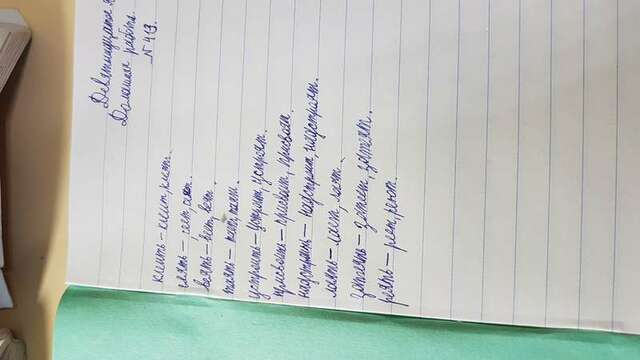 Девятнадцатое
Домашняя работа.
№ 419.
клеить – клеит, клеят.
сеять – сеет, сеят.
веять – веет, веят.
таять – таит, таят.
устроить – устроит, устроят.
присвоить – присвоит, присвоят.
надстроить – надстроит, надстроят.
лаять – лает, лают.
затеять – затеет, затеят.
реять – реет, реют.